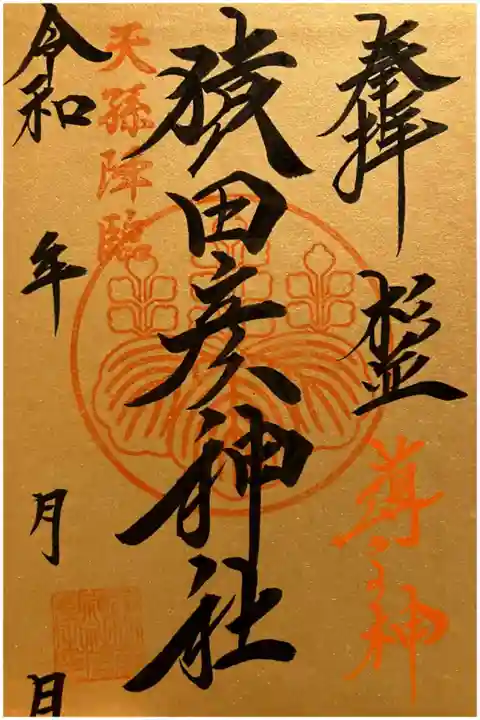 奉拝 杉並
導之神
猿田彦神社
天孫降臨
令和 年 月 日